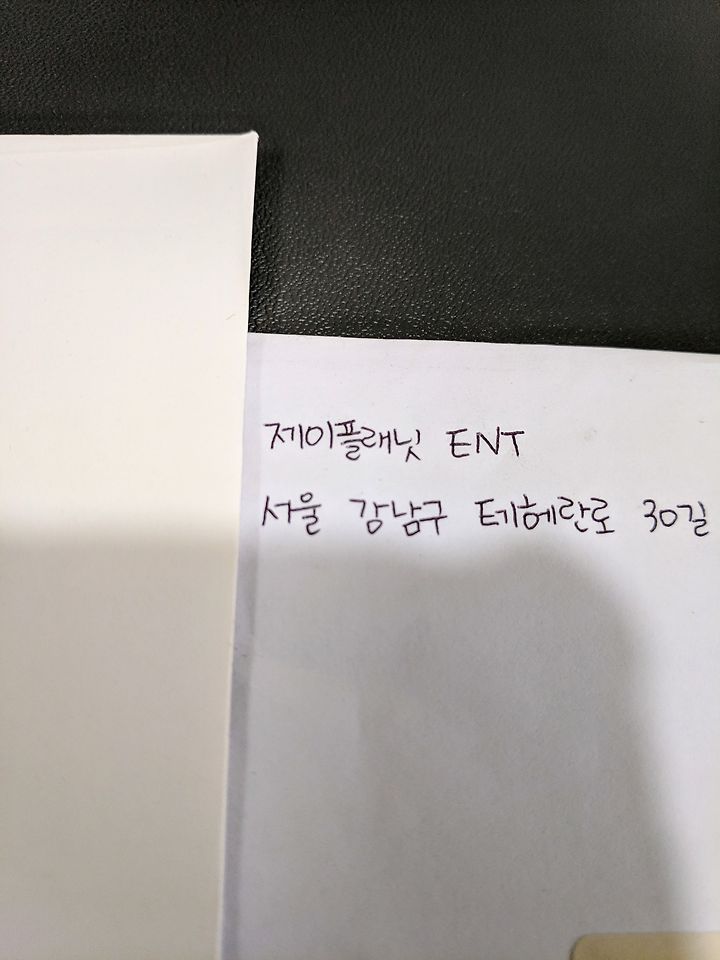 제이플래닛 ENT
서울 강남구 테헤란로 30길